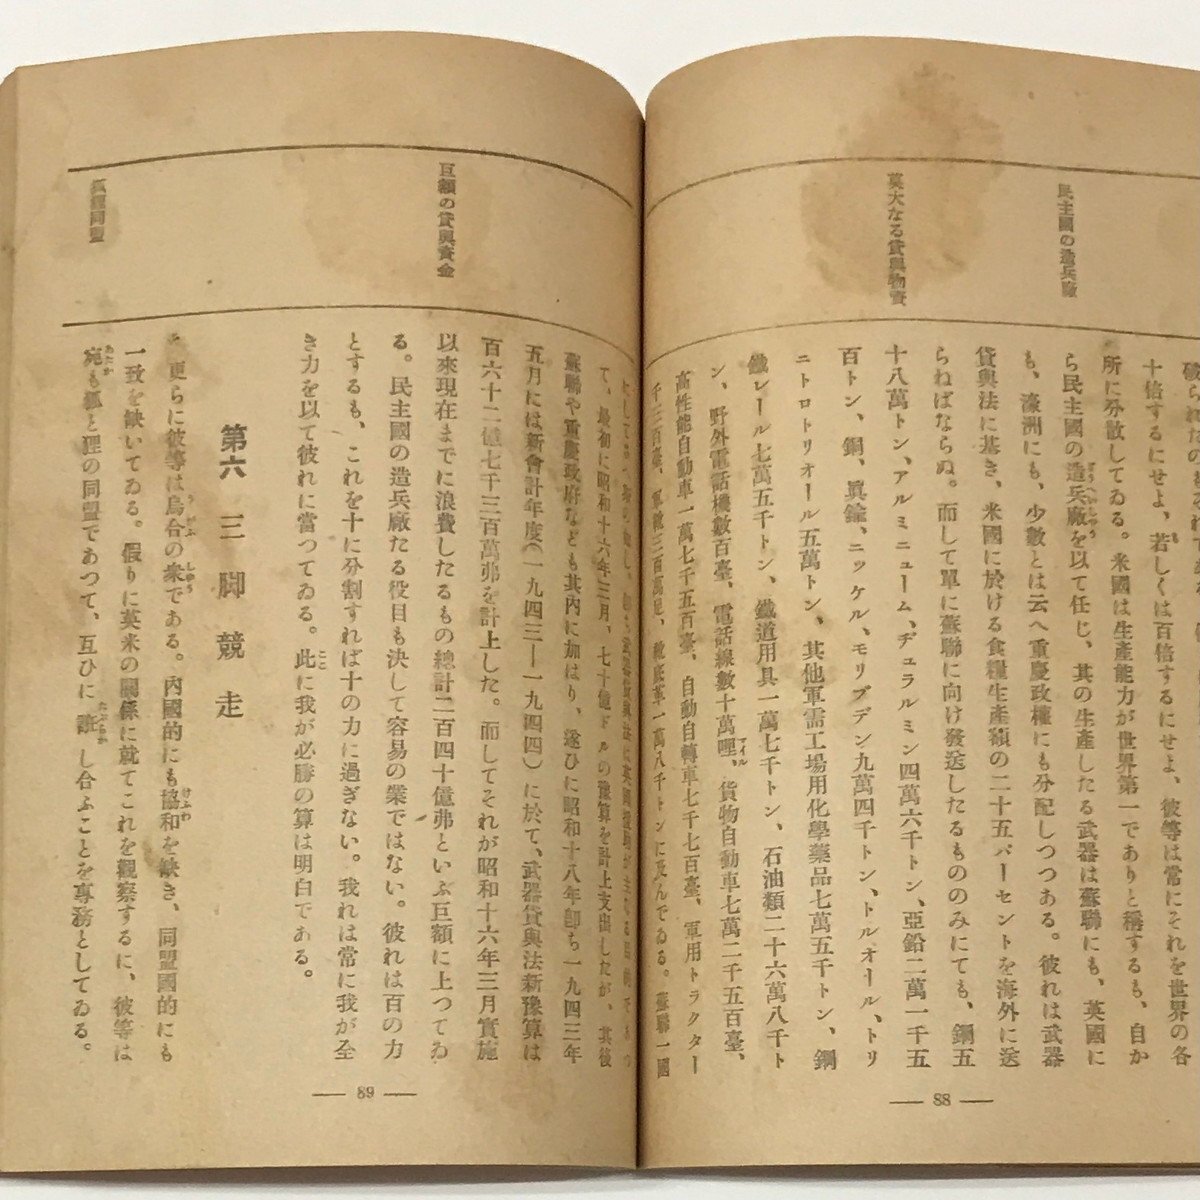 民主國の造兵廠
莫大なる貸與物資
十倍するにせよ、若しくは百倍するにせよ、彼等は常にそれを世界の各
所に分散してゐる。米國は生產能力が世界第一でありと稱するも、自か
ら民主國の造兵廠を以て任じ、其の生產したる武器は蘇聯にも、英國に
も、濠洲にも、少數とは云へ重慶政權にも分配しつつある。彼れは武器
貸與法に基き、米國に於ける食糧生產額の二十五パーセントを海外に送
らねばならぬ。而して單に蘇聯に向け發送したるもののみにても、鋼五
十八萬トン、アルミニューム、ヂュラルミン四萬六千トン、亞鉛二萬一千五
百トン、銅、眞鍮、ニッケル、モリブデン九萬四千トン、トルオール、トリ
ニトロトリオール五萬トン、其他軍需工場用化學藥品七萬五千トン、鋼
鐵レール七萬五千トン、鐵道用具一萬七千トン、石油類二十六萬八千ト
ン、野外電話機數百臺、電話線數十萬哩、貨物自動車七萬二千五百臺、
高性能自動車一萬七千五百臺、自動自轉車七千七百臺、軍用トラクター
千三百臺、軍靴三百萬足、靴底革一萬八千トンに及んでゐる。蘇聯一國
— 88 —
巨額の貸與資金
狐狸同盟
て、最初に昭和十六年三月、七十億ドルの豫算を計上支出したが、其後
蘇聯や重慶政府なども其內に加はり、遂ひに昭和十八年卽ち一九四三年
五月には新會計年度(一九四三—一九四四)に於て、武器貸與法新豫算は
百六十二億七千三百萬弗を計上した。而してそれが昭和十六年三月實施
以來現在までに浪費したるもの總計二百四十億弗といふ巨額に上つてゐ
る。民主國の造兵廠たる役目も決して容易の業ではない。彼れは百の力
とするも、これを十に分割すれば十の力に過ぎない。我れは常に我が全
き力を以て彼れに當つてゐる。此に我が必勝の算は明白である。
第六 三脚競走
更らに彼等は烏合の衆である。內國的にも協和を缺き、同盟國的にも
一致を缺いてゐる。假りに英米の關係に就てこれを觀察するに、彼等は
宛も狐と狸の同盟であつて、互ひに し合ふことを專務としてゐる。
— 89 —